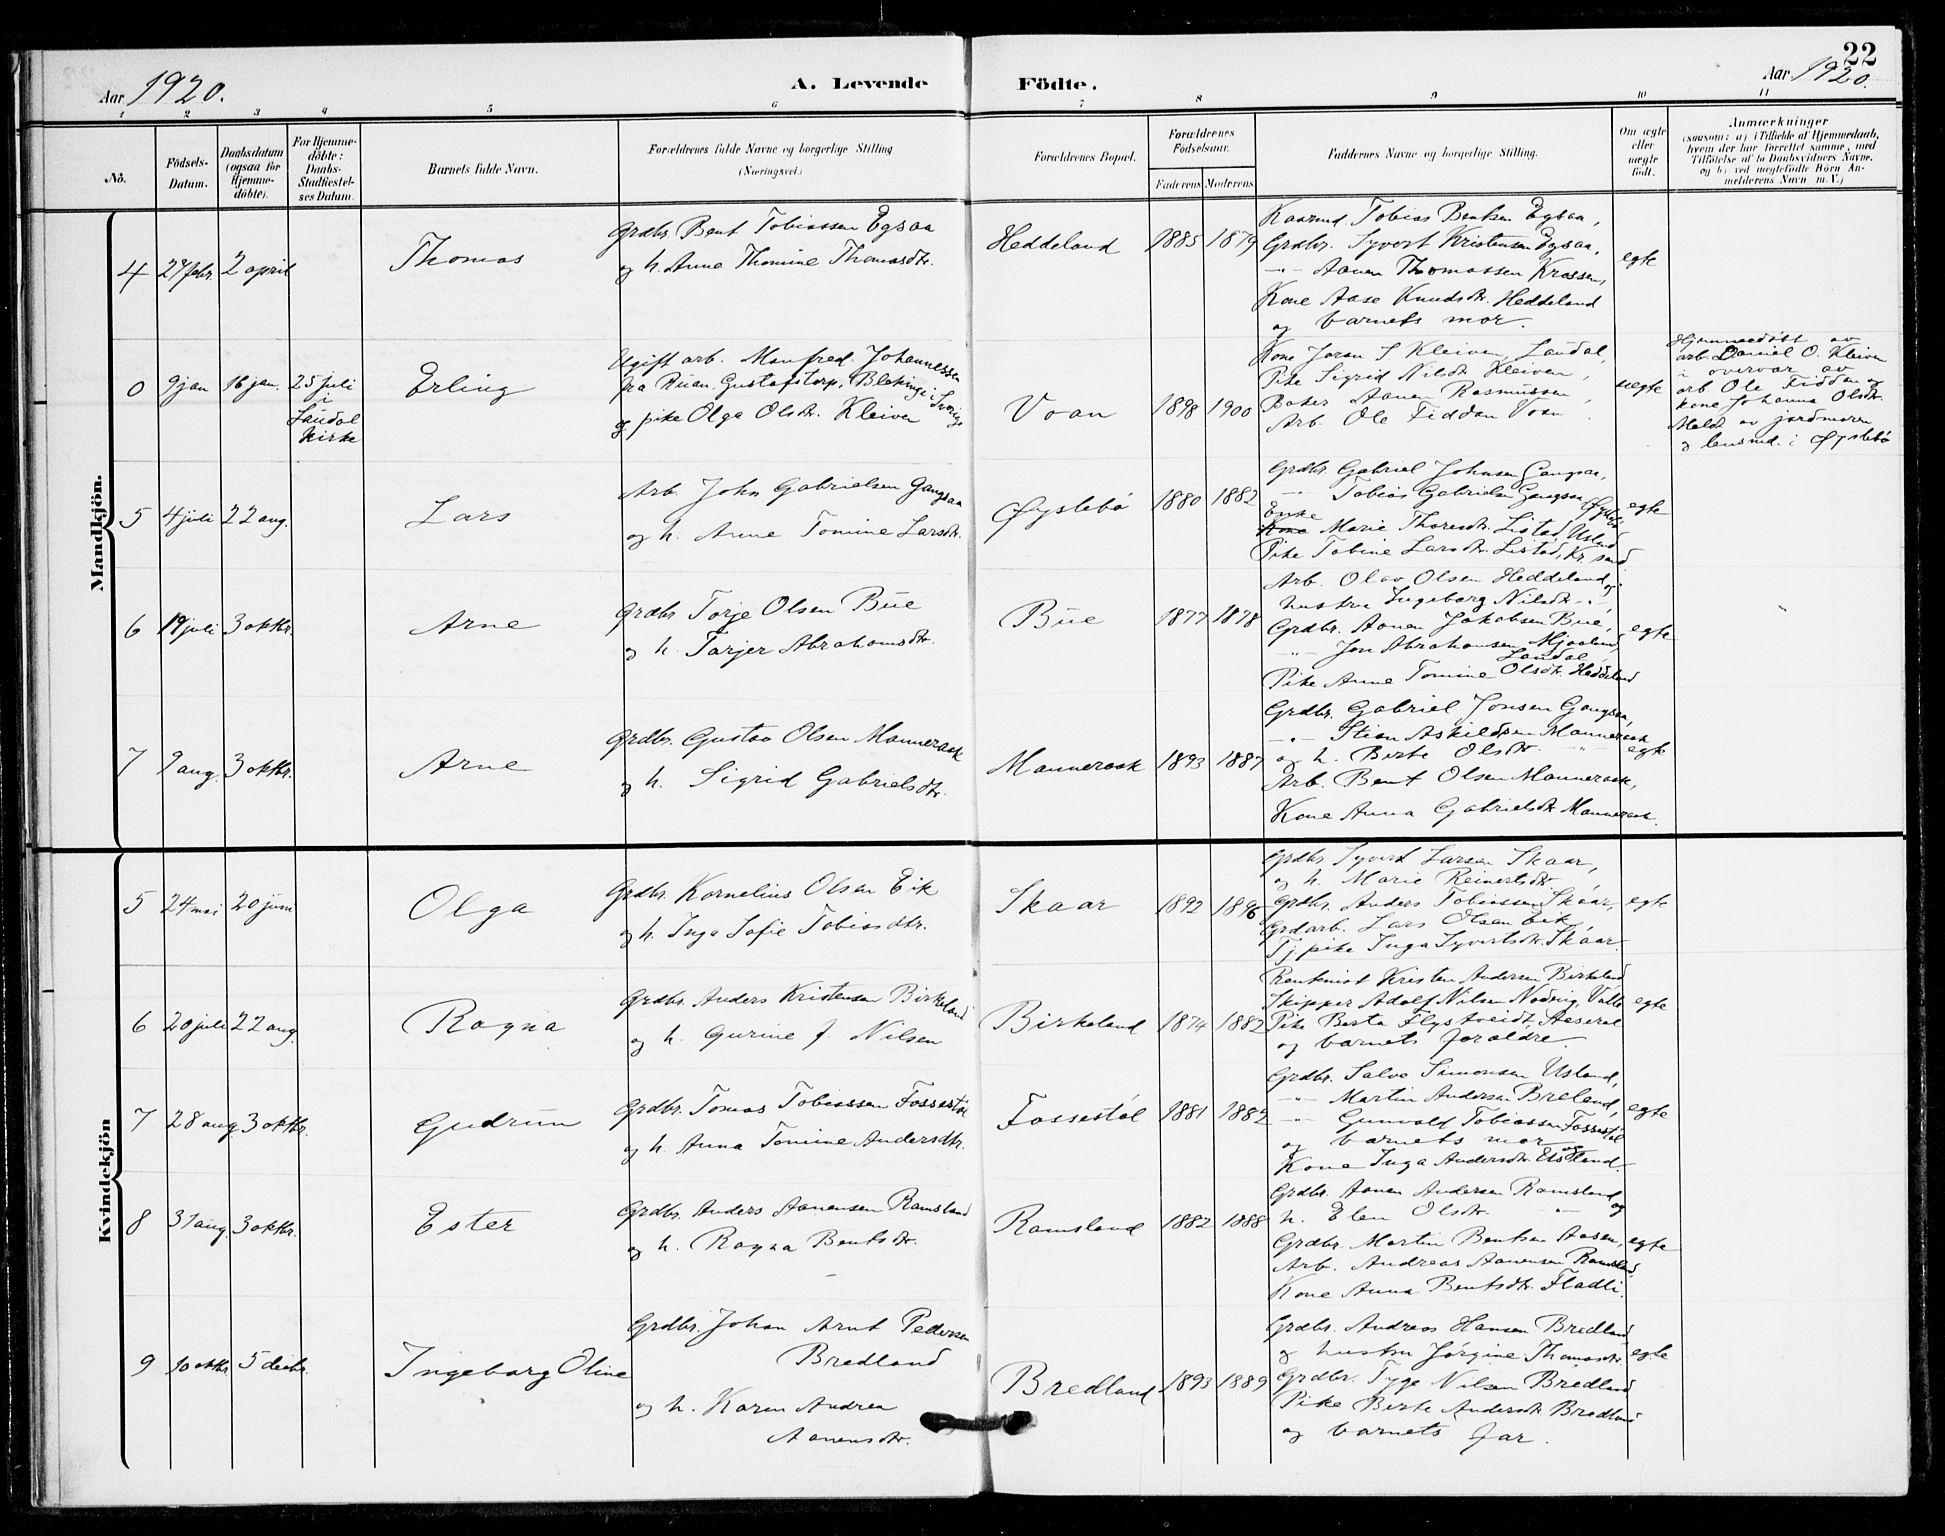 22
Aar 1920.
A. Levende
Födte.
Aar 1920.
1 2 3 4 5 6 7 8 9 10 11
No.
Födsels-
Datum.
Daabsdatum
(ogsaa for
Hjemme-
döbte).
For Hjemme-
döbte:
Daabs-
Stadfæstel-
ses Datum.
Barnets fulde Navn.
Forældrenes fulde Navne og borgerlige Stilling
(Næringsvei.)
Forældrenes Bopæl.
Forældrenes
Födselsaar.
Faderens Moderens
Faddernes Navne og borgerlige Stilling.
Om ægte
eller
uægte
födt.
Anmærkninger
(saasom: a) i Tilfælde af Hjemmedaab,
hvem der har forrettet samme, med
Tilföielse af to Daabsvidners Navne,
og b) ved uægtefödte Börn An-
melderens Navn m.V.)
Mandkjön.
4 27 febr. 2 april
Thomas
Grdbr. Bent Tobiassen Egsaa
og h. Anne Thomine Thomasdtr.
Heddeland
1885 1879
Kaarmd. Tobias Bentsen Egsaa,
Grdbr. Syvert Kristensen Egsaa,
-"- Aanen Thomassen Krossen,
Kone Aase Knudsdtr. Heddeland
og barnets mor.
egte
0 9 jan 16 jan. 25 juli
i
Laudal
Kirke
Erling
Ugift arb. Manfred Johannessen
fra Ruan, Gustafstorp, Bleking i Sverige
og pike Olga Olsdtr. Kleiven
Voan
1898 1900
Kone Joran S. Kleiven, Laudal,
Pike Sigrid Nilsdtr Kleiven,
Baker Aanen Rasmussen,
Arb. Ole Fiddan Voan
uegte
Hjemmedøbt av
arb. Daniel O. Kleiven
i overvær av
arb Ole Fiddan og
kone Johanna Olsdtr.
Meldt av jordmoren
og lensmd. i Øyslebø
5 4 juli 22 aug.
Lars
Arb. John Gabrielsen Gangsaa
og h. Anne Tomine Larsdtr.
Øyslebø
1880 1882
Grdbr. Gabriel Johnsen Gangsaa,
-"- Tobias Gabrielsen Gangsaa, Øyslebø
Enke
Kone Marie Thoresdtr. Listad, Usland
Pike Tobine Larsdtr. Listad, Kr.sand
egte
6 19 juli 3 oktbr.
Arne
Grdbr. Torje Olsen Bue
og h. Tarjer Abrahamsdtr.
Bue
1877 1878
Arb. Olav Olsen Heddeland og
hustru Ingeborg Nilsdtr. -"-,
Grdbr. Aanen Jakobsen Bue,
-"- Jon Abrahamsen Mjaaland,
Laudal,
Pike Anne Tomine Olsdtr. Heddeland
egte
7 9 aug. 3 oktbr.
Arne
Grdbr. Gustav Olsen Manneraak
og h. Sigrid Gabrielsdtr.
Manneraak
1893 1887
Grdbr. Gabriel Jonsen Gangsaa,
-"- Stian Askildsen Manneraak
og h. Birte Olsdtr -"-
Arb. Bent Olsen Manneraak,
Kone Anna Gabrielsdtr Manneraak.
egte
Kvindekjön
5 24 mai 20 juni
Olga
Grdbr. Kornelius Olsen Eik
og h. Inga Sofie Tobiasdtr.
Skaar
1892 1896
Grdbr Syvert Larsen Skaar,
og h. Marie Reinertsdtr.,
Grdbr. Anders Tobiassen Skaar,
Grdarb. Lars Olsen Eik,
Tj.pike Inga Syvertsdtr. Skaar.
egte
6 20 juli 22 aug.
Ragna
Grdbr. Anders Kristensen Birkeland
og h. Gurine f. Nilsen
Birkeland
1874 1882
Rentenist Kristen Andersen Birkeland
Skipper Adolf Nilsen Nodvig, Valle
Pike Berta Flystveidt, Aaseral
og barnets foraldre.
egte
7 28 aug. 3 oktbr.
Gudrun
Grdbr. Tomas Tobiassen Fossestøl
og h. Anna Tomine Andersdtr.
Fossestøl
1881 1882
Grdbr. Salve Simonsen Usland,
-"- Martin Andersen Breland,
-"- Gunvald Tobiassen Fossestøl
og barnets mor og
Kone Inga Andersdtr. Usland.
egte
8 31 aug. 3 oktbr.
Ester
Grdbr. Anders Aanensen Ramsland
og h. Ragna Bentsdtr.
Ramsland
1882 1888
Grdbr. Aanen Andersen Ramsland og
h. Elen Olsdtr. -"-
Grdbr. Martin Bentsen Aasen,
Arb. Andreas Aanensen Ramsland,
Kone Anna Bentsdtr. Fladli.
egte
9 10 oktbr. 5 decbr.
Ingeborg Oline
Grdbr. Johan Arnt Pedersen
Bredland
og h. Karen Andrea
Aanensdtr.
Bredland
1893 1889
Grdbr. Andreas Hansen Bredland
og hustru Jørgine Thomasdtr.
Grdbr. Tyge Nilsen Bredland
Pike Birte Andersdtr. Bredland
og barnets far.
egte